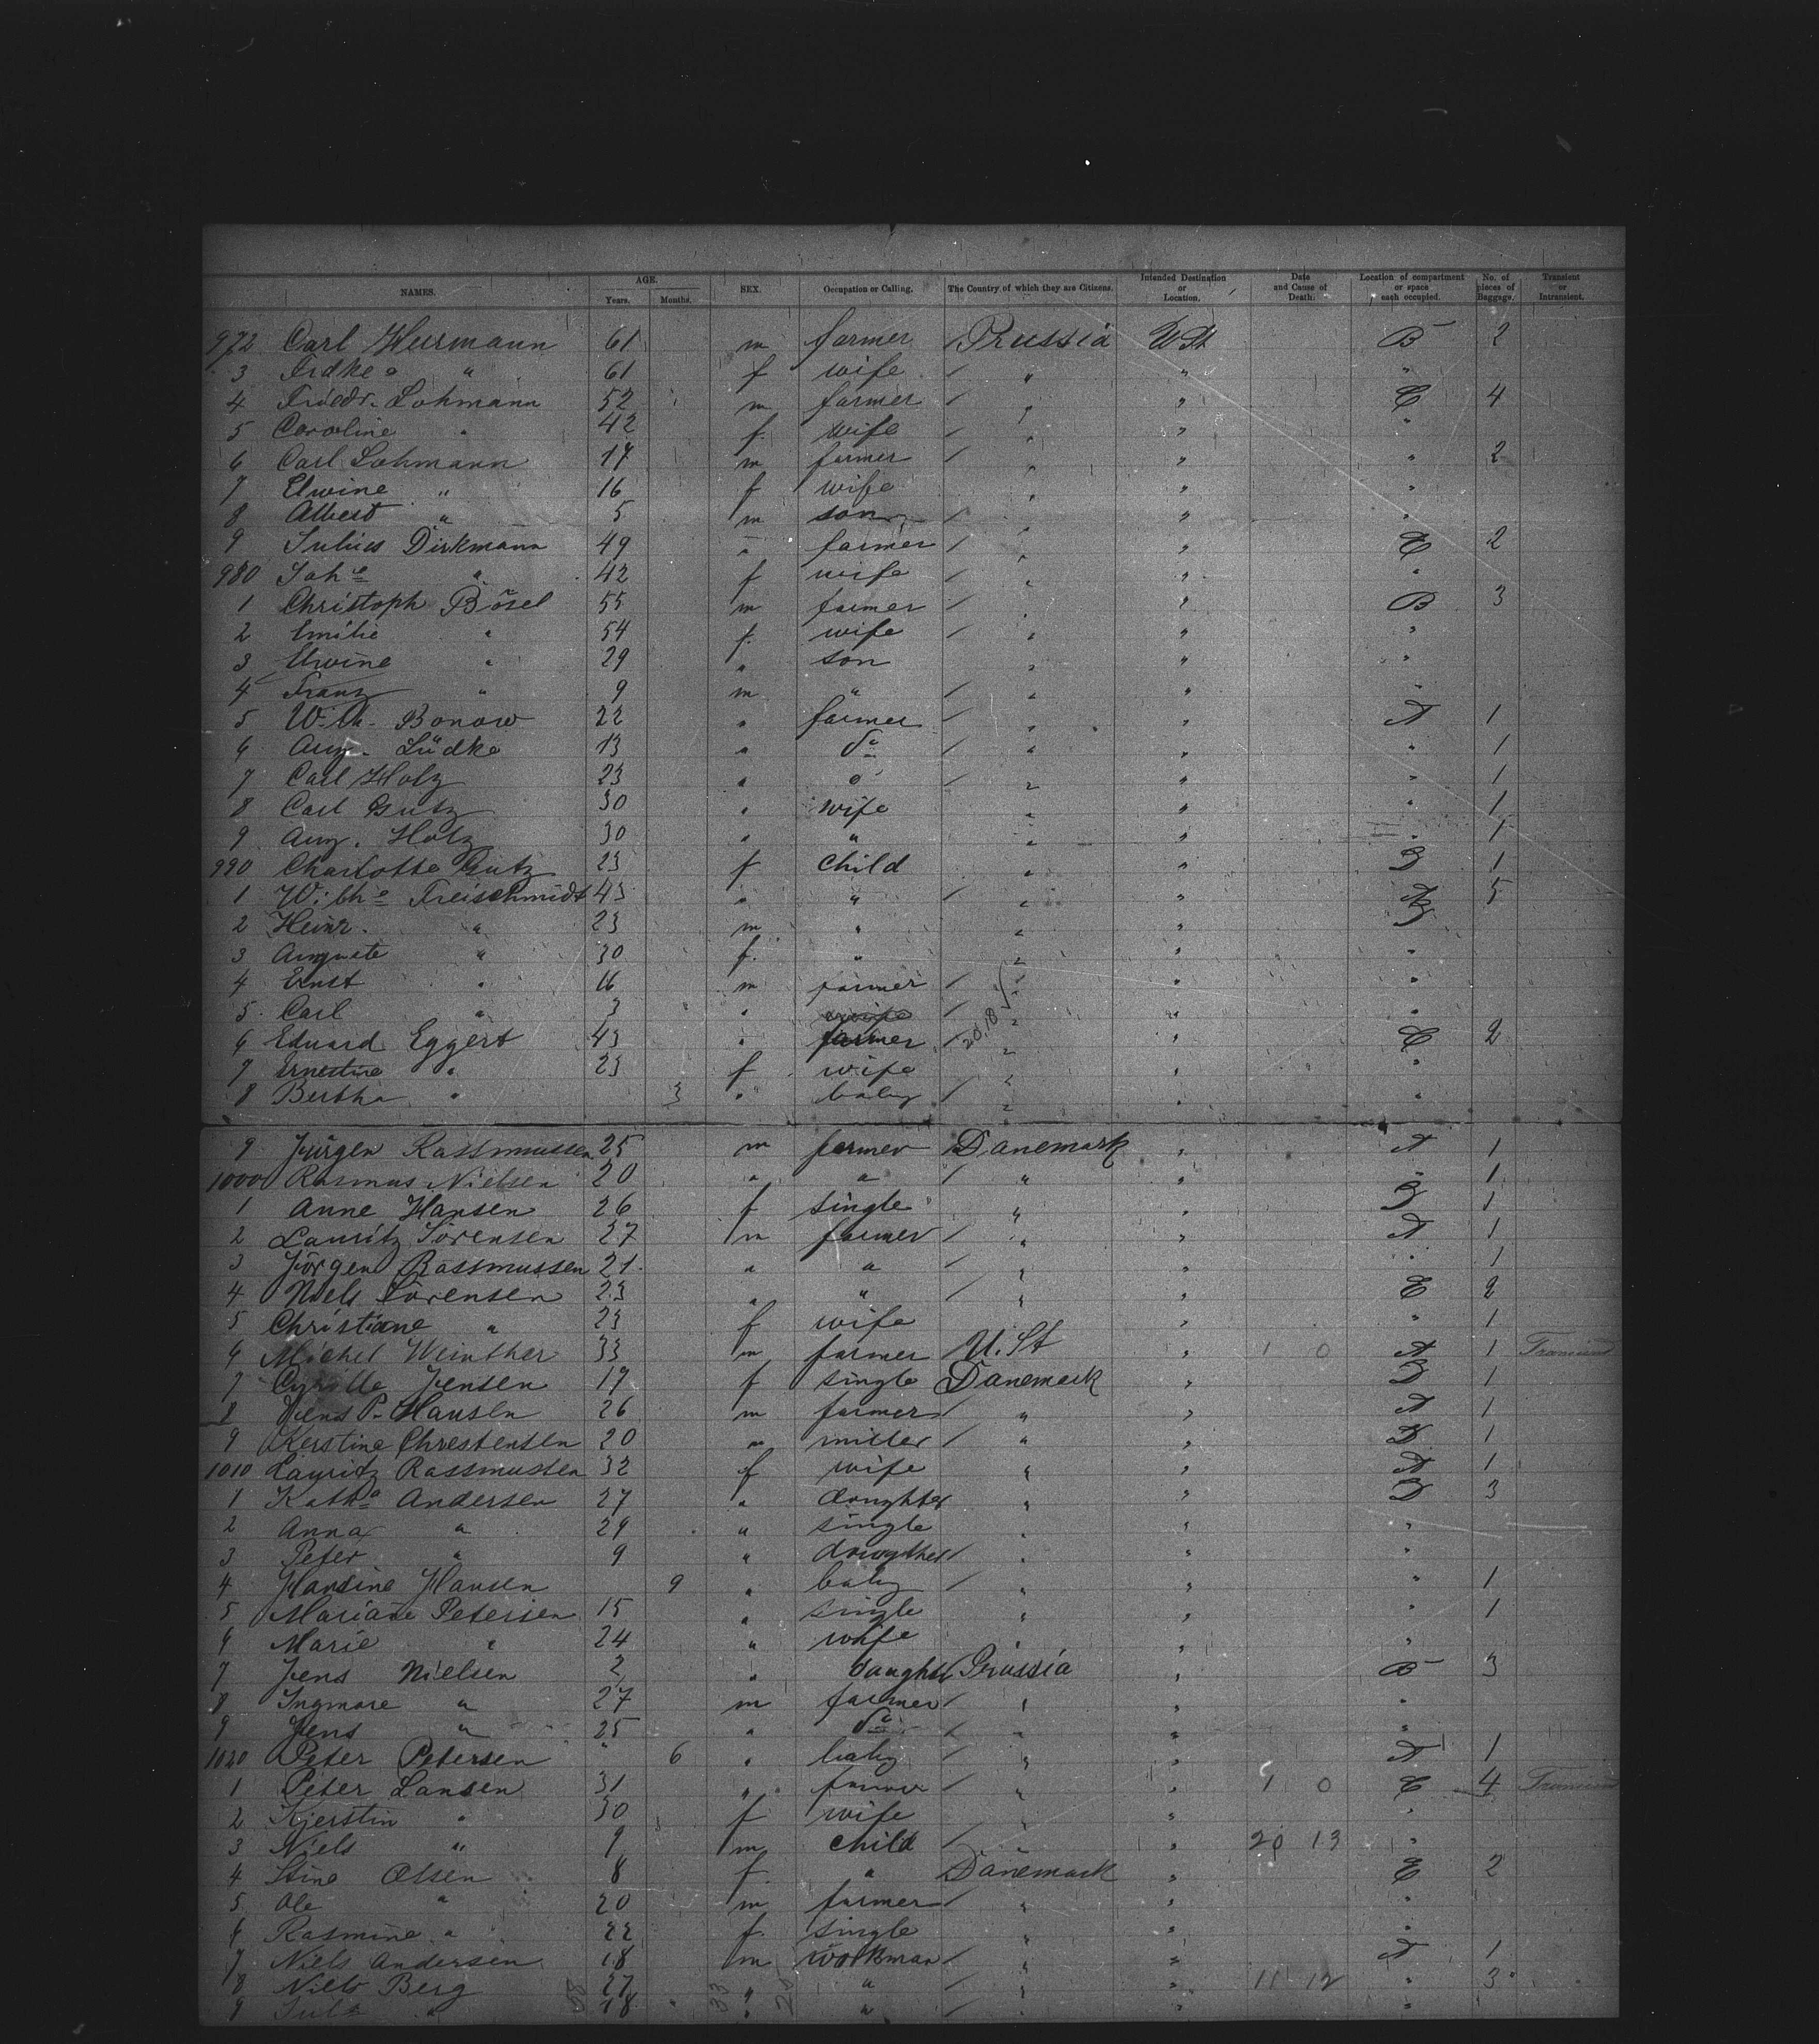 NAMES. AGE. Years. Months. SEX. Occupation or Calling. The Country of which they are Citizens. Intended Destination or Location. Date and Cause of Death. Location of compartment or space each occupied. No. of pieces of Baggage. Transient or Intransient.
972 Carl Hermann 61 m farmer Prussia USt B 2
3 Fridke " 61 f wife " " "
4 Friedr. Lohmann 52 m farmer " " C 4
5 Caroline " 42 f. wife " " "
6 Carl Lohmann 17 m farmer " " " 2
7 Elwine " 16 f wife " " "
8 Albert " 5 m son " " "
9 Julius Dirkmann 49 " farmer " " C 2
980 Joh " 42 f wife " " "
1 Christoph Bösel 55 m farmer " " B 3
2 Emilie " 54 f. wife " " "
3 Elwine " 29 " son " " "
4 Franz " 9 m " " " "
5 Wilh. Bonow 22 " farmer " " A 1
6 Aug. Lüdke 13 " do " " " 1
7 Carl Holz 23 " " " " 1
8 Carl Gutz 30 " wife " " " 1
9 Aug. Holz 30 " " " " " 1
990 Charlotte Gutz 23 f child " " D 1
1 Wilhe Freischmidt 43 " " " " 5
2 Heinr. " 23 m " " "
3 Auguste " 30 f. " " " "
4 Ernst " 16 m farmer " " "
5 Carl " 3 " " " "
6 Eduard Eggert 43 " farmer " " C 2
7 Ernestine " 23 f wife " " "
8 Bertha " 3 " baby " " "
9 Jürgen Rassmussen 25 m farmer Danemark " A 1
1000 Rasmus Nielsen 20 " " " " " 1
1 Anne Hansen 26 f single " " D 1
2 Lauritz Sörensen 27 m farmer " " A 1
3 Jörgen Rassmussen 21 " " " " " 1
4 Niels Sörensen 23 " " " " E 2
5 Christiane " 23 f wife " " 1
6 Michel Weinther 33 m farmer U.St " 1 0 A 1 Transient
7 Jensen 17 f single Danemark " D 1
8 Jens P. Hansen 26 m farmer " " A 1
9 Kerstine Chrestensen 20 " miller " " D 1
1010 Lauritz Rassmussen 32 f wife " " A 1
1 Kath Andersen 27 " doughter " " D 3
2 Anna " 29 " single " " "
3 Peter " 9 " " " "
4 Hansine Hansen 9 " baby " " " 1
5 Mariane Petersen 15 " single " " " 1
6 Marie " 24 " wife " " "
7 Jens Nielsen 2 " daughte Prussia " B 3
8 Ingmare " 27 m farmer " " "
9 Jens " 25 " do " " "
1020 Peter Petersen " 6 " baby " " A 1
1 Peter Lansen 31 " farmer " " 1 0 C 4 Transient
2 Kjerstin " 30 f wife " "
3 Niels " 9 m child " " 20 13 "
4 Stine Olsen 8 f " Danemark " E 2
5 Ole " 20 m farmer " " "
6 Rasmine " 22 f. single " " "
7 Niels Andersen 18 m workman " " A 1
8 Niels Berg 27 " " " " 11 12 " 3
9 " 18 " " " " "